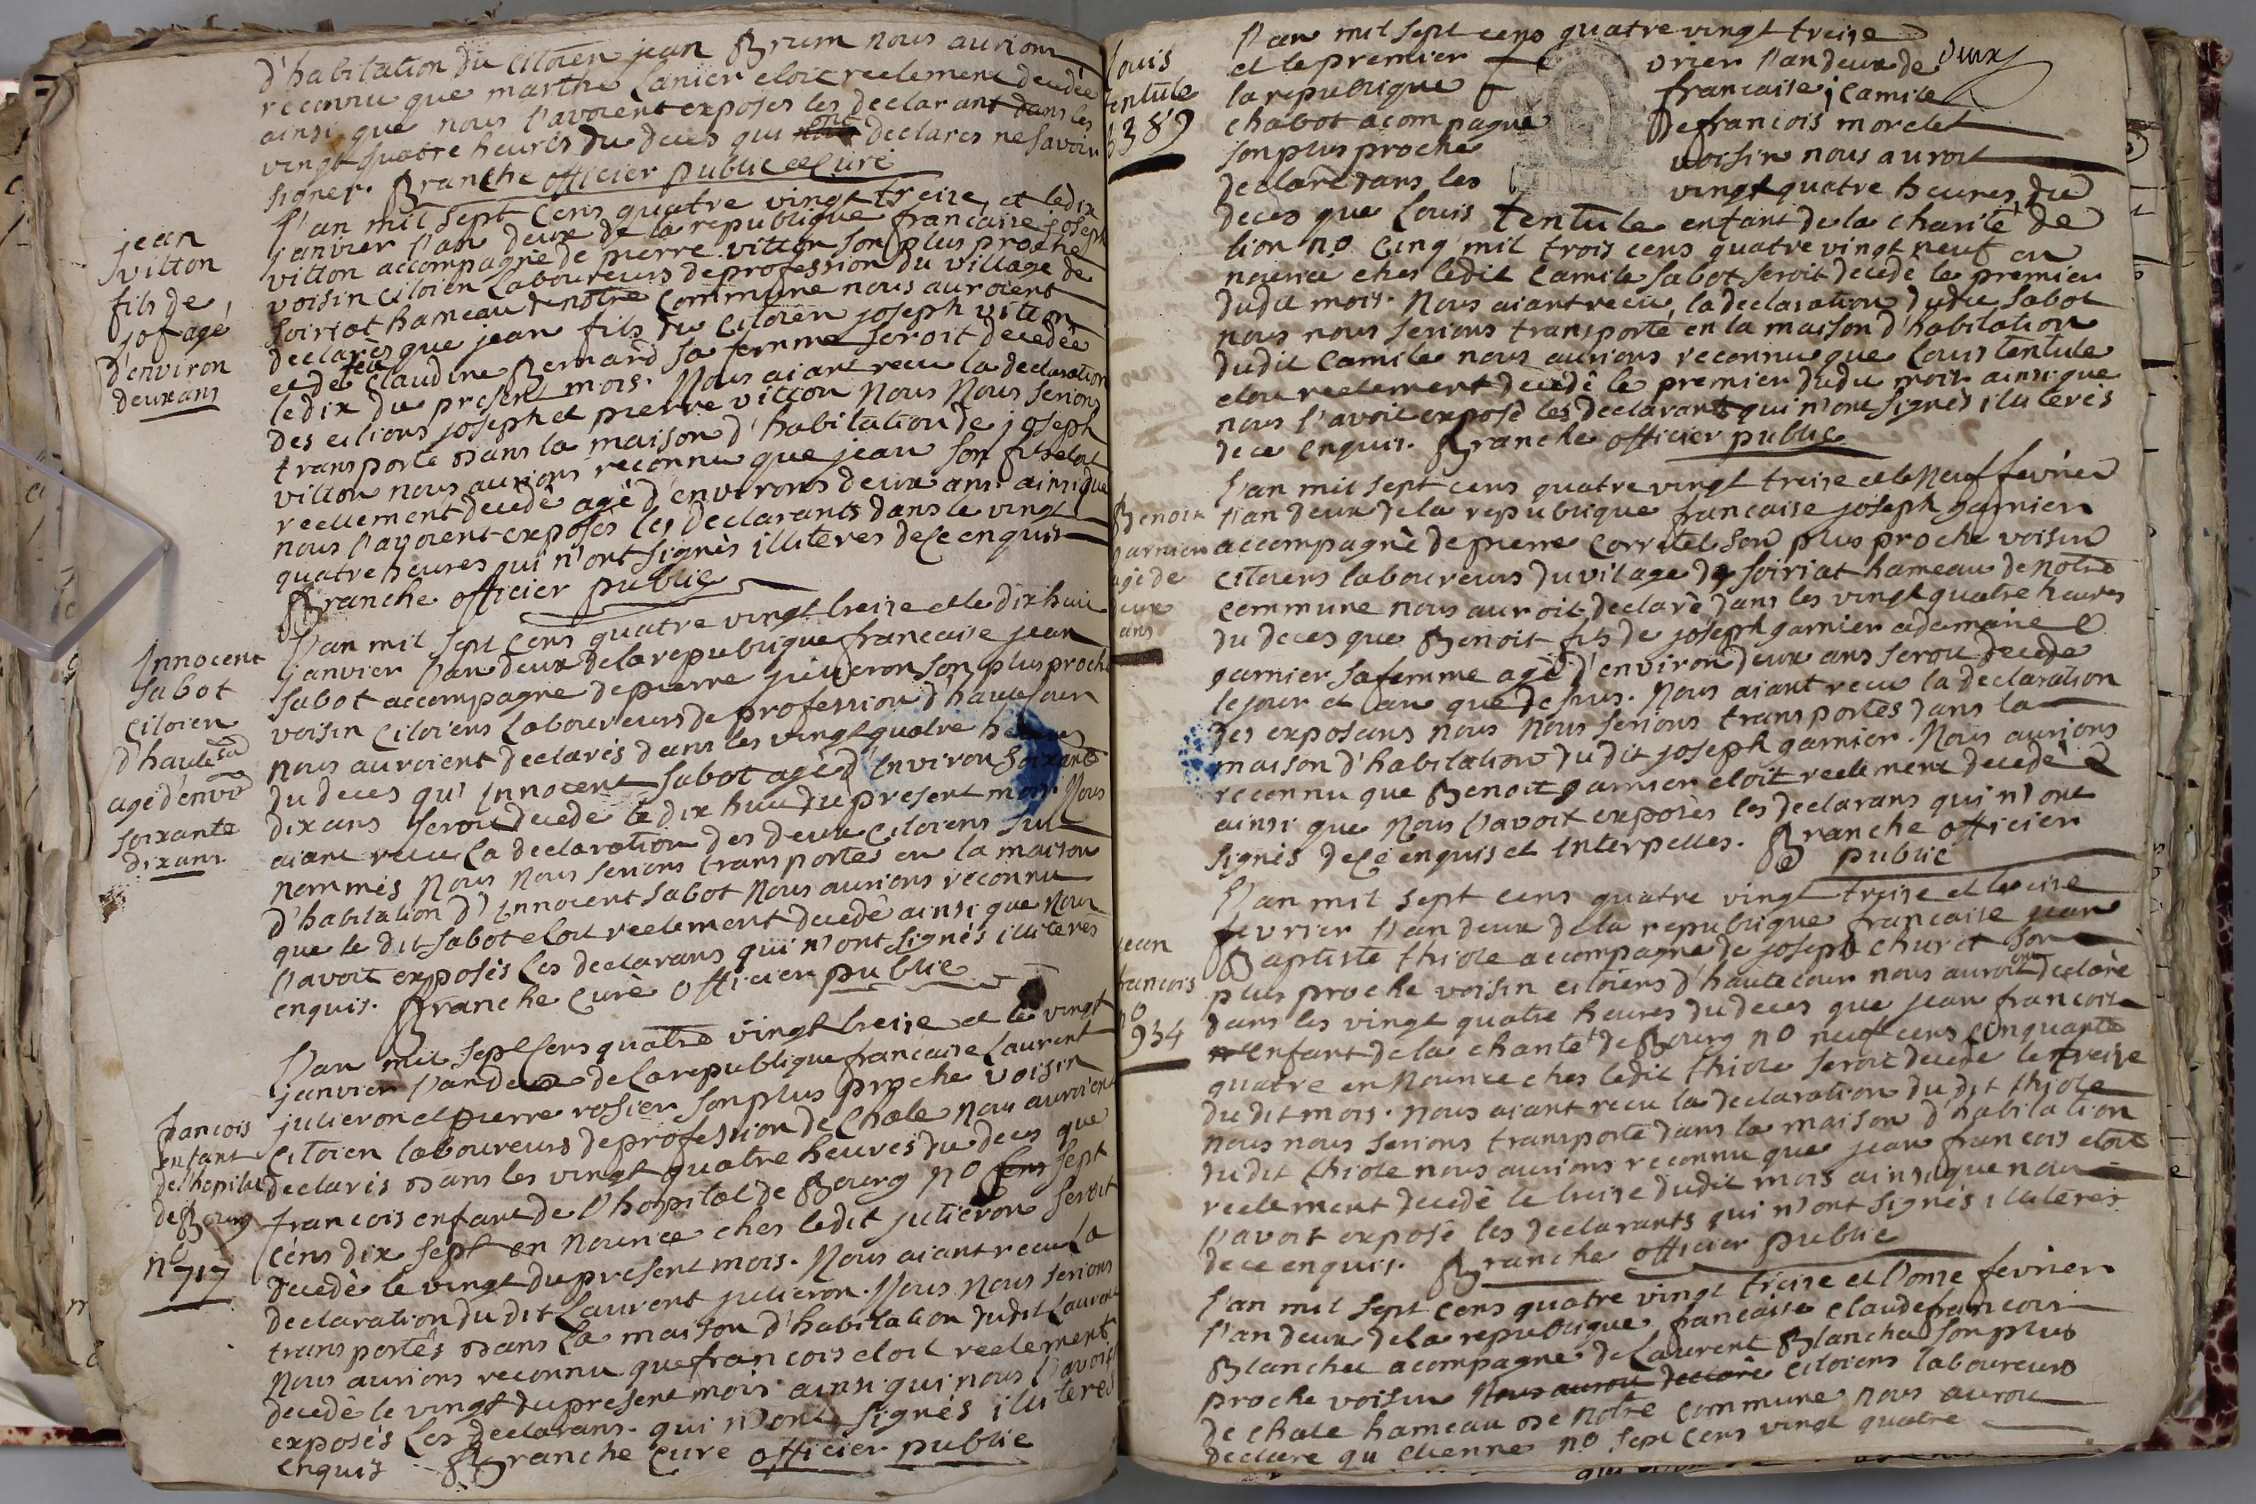 d'habitation du citoien jean Brum nous aurions
reconnu que marthe Lanier etoit reelement decedée
ainsi que nous l'avoient exposés les declarant dans les
vingt quatre heures du deces qui ont declarés ne savoir
signer. Branche officier public et Curé
jean
vitton
fils de
jof agé
d'environ
deux ans
L'an mil sept cens quatre vingt treise, et le dix
janvier l'an deux de la republique francaise joseph
vitton accompagné de pierre vitton son plus proche
voisin citoien laboureurs de profession du village de
soiriat hameau de notre commune nous auroient
declarés que jean fils du citoien joseph vitton
et de feu claudine Bernard sa femme seroit decedée
le dix du present mois. Nous aiant recu la declaration
des citions joseph et pierre vitton Nous Nous serions
transporté dans la maison d'habitation de joseph
vitton nous aurions reconnu que jean son fils etoit
reellement decedé agé d'environs deux ans ainsi que
nous l'avoient exposés les declarants dans le vingt
quatre heures qui n'ont signés illiteres de ce enquis
Branche officier public
Innocent
sabot
citoien
d'hautecour
agé d'environ
soixante
dix ans
L'an mil sept cens quatre vingt treise et le dix huit
janvier l'an deux de la republique francaise jean
sabot accompagne de pierre juileron son plus proche
voisin citoiens laboureurs de profession d'hautecour
nous auroient declarés dans les vingt quatre heures
du deces qu'Innocent sabot agé d'environ soixante
dix ans seroit decedé le dix huit du present mois. Nous
aiant recu la declaration des deux citoiens sus
nommés Nous Nous serions transporté en la maison
d'habitation d'Innocent sabot Nous aurions reconnu
que le dit sabot etoit reelement decedé ainsi que Nous
l'avoit exposés les declarans qui n'ont signés illiteres
enquis. Branche Curé officier public
francois
enfant
de l'hopital
de Bourg
no
717
L'an mil sept cens quatre vingt treise et le vingt
janvier l'an deux de la republique francaise Laurent
julieron et pierre rosier son plus proche voisin
citoien laboureurs de profession de Chale Nous auroient
declarés dans les vingt quatre heures du deces que
francois enfant de l'hopital de Bourg no sept
cens dix sept en nourice ches ledit julieron seroit
decedé le vingt du present mois. Nous aiant recu la
declaration du dit Laurent julieron. Nous Nous serions
transportés dans la maison d'habitation dudit Laurent
Nous aurions reconnu que francois etoit reelement
decedé le vingt du present mois ainsi qui nous l'avoit
exposés les declarans. qui n'ont signés illiteres
enquis Branche Curé officier public
Louis
tentule
5389
L'an mil sept cens quatre vingt treise
et le premier vrier l'an deux de
la republique francaise, Camile
chabot acompagné de francois morelet
son plus proche voisin nous auroit
declaré dans les vingt quatre heures du
deces que Louis tentule enfant de la charité de
lion no cinq mil trois cens quatre vingt neuf en
nourice ches ledit Camile sabot seroit decedé le premier
dudit mois. Nous aiant recu la declaration dudit sabot
nous nous serions transporté en la maison d'habitation
dudit Camile nous aurions reconnu que Louis tentule
etoit reelement decedé le premier dudit mois ainsi que
nous l'avoit exposé les declarants qui n'ont signés illiteres
de ce enquis. Branche officier public
Benoit
garnier
agé de
deux
ans
L'an mil sept cens quatre vingt treise et le Neuf fevrier
l'an deux de la republique francaise joseph garnier
accompagné de pierre Corretel son plus proche voisin
citoiens laboureurs du vilage de soiriat hameau de notre
commune nous auroit declaré dans les vingt quatre heures
du deces que Benoit fils de joseph garnier
garnier sa femme agé d'environ deux ans seroit decedé
le jour et l'an que dessus. Nous aiant recu la declaration
des exposans nous Nous serions transportés dans la
maison d'habitation du dit joseph garnier. Nous aurions
reconnu que Benoit garnier etoit reelement decedé
ainsi que Nous l'avoit exposés les declarans qui n'ont
signés de ce enquis et Interpelles. Branche officier
public
jean
francois
no
954
L'an mil sept cens quatre vingt treise et treise
fevrier l'an deux de la republique francaise jean
Baptiste thiole accompagné de joseph churet son
plus proche voisin citoiens d'hautecour nous auroient declaré
dans les vingt quatre heures du deces que jean francois
enfant de la charité de Bourg no neuf cens cinquante
quatre en Nourice ches ledit thiole seroit decedé le treise
dudit mois. nous aiant recu la declaration du dit thiole
nous nous serions transporté dans la maison d'habitation
dudit thiole nous aurions reconnu que jean francois etoit
reelement decedé le treise dudit mois ainsi que nous
l'avoit exposé les declarants qui n'ont signés illiteres
de ce enquis. Branche officier public
L'an mil sept cens quatre vingt treise et l'onse fevrier
l'an deux de la republique francaise claude francois
Blanchet acompagné de Laurent Blanchet son plus
proche voisin Nous auroit declaré citoiens laboureurs
de chale hameau de notre commune nous auroit
declare qu'etienne no sept cens vingt quatre